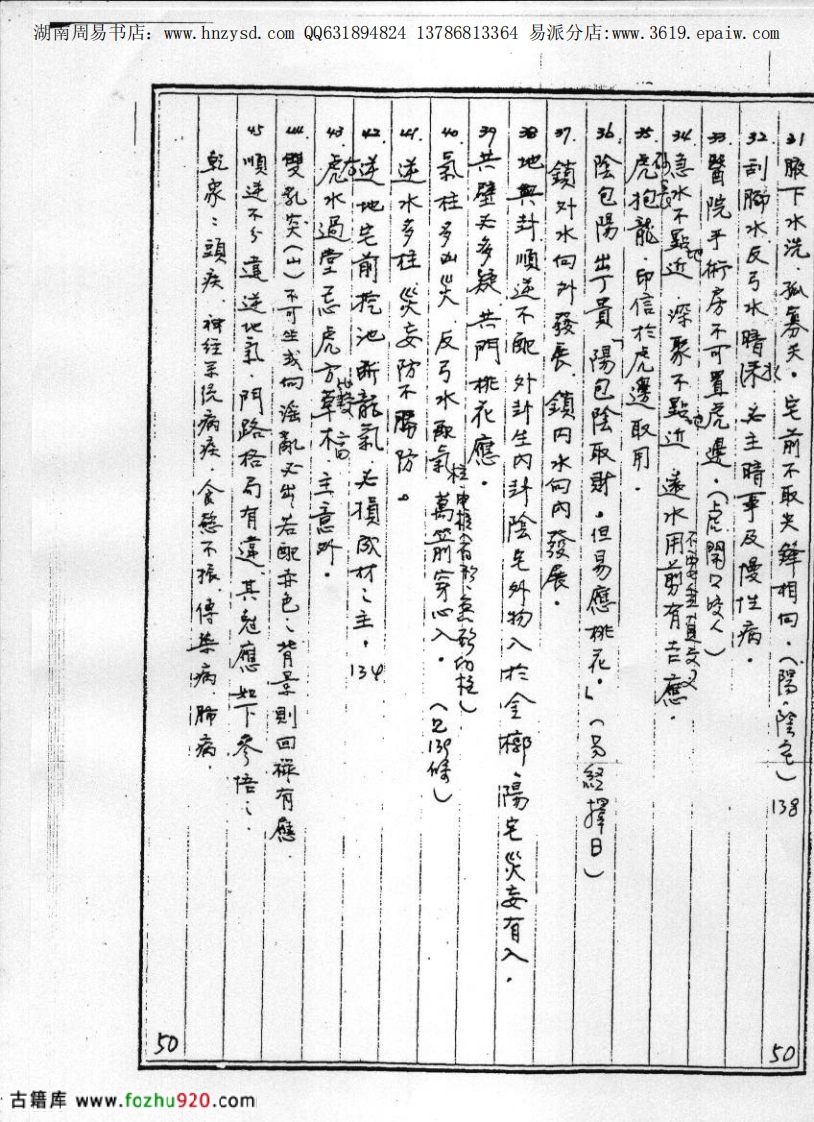 湖南周易书店：www.hnzysd.com QQ631894824 13786813364 易派分店:www.3619.epaiw.com
31 腋下水洗．孤寡失．宅前不取尖鋒相向．（陽．陰宅）138
32．刮腳水反弓水暗水．必主暗事及慢性病．
33．醫院手術房不可置虎邊．（虎開口咬人）
34．急水不點近地．深聚不點近地 遠水用剪有吉應．
35．虎抱龍．印信於虎邊取用．
36．陰包陽出丁貴「陽包陰取財．但易應桃花．」（易經擇日）
37．鎖外水向外發展 鎖內水向內發展．
38．地與封順逆不配 外封生內封 陰宅外物入於金槨．陽宅災妄有入．
39 共壁必多疑 共門桃花應．
40．氣柱多凶災 反弓水取氣 萬箭穿心入．（見139條）
41．逆水多柱災妄防不勝防。
42．逆地宅前挖池斷龍氣 必損成材之主．134
43．虎水過堂忌虎方 主意外．
44．雙乳尖（山）不可坐或向淫亂必出若配赤色之背景則回祿有應．
45 順逆不分違逆地氣．門路格局有違其剋應如下參悟之．
乾象：頭疾．神經系統病疾．食慾不振．傳染病．肺病．
50
50
古籍库 www.fozhu920.com